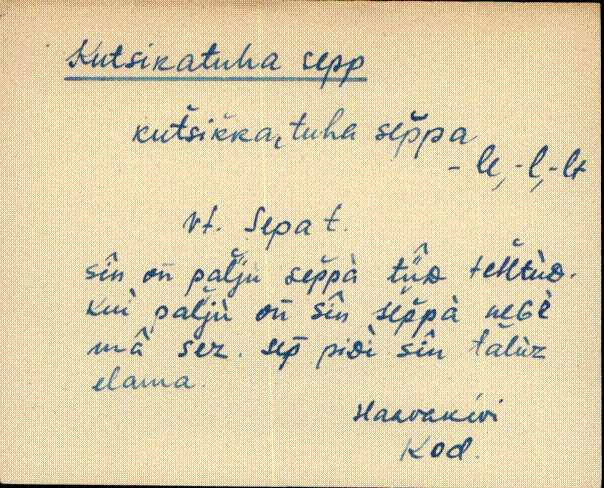 Kutsikatuha sepp
kut̆šikka, tuha sep̆pa
- le, -l, -lt
vt. Sepa t.
sîn on̄ pal̆ju sep̆pà tŷ̄ᴅ teh̆tùᴅ.
kui pal̆jù on̄ sîn sep̆pà neʙè
mâ sez. sep̄ piᴅì sîn tălùz
elama.
Haavakivi
Kod.